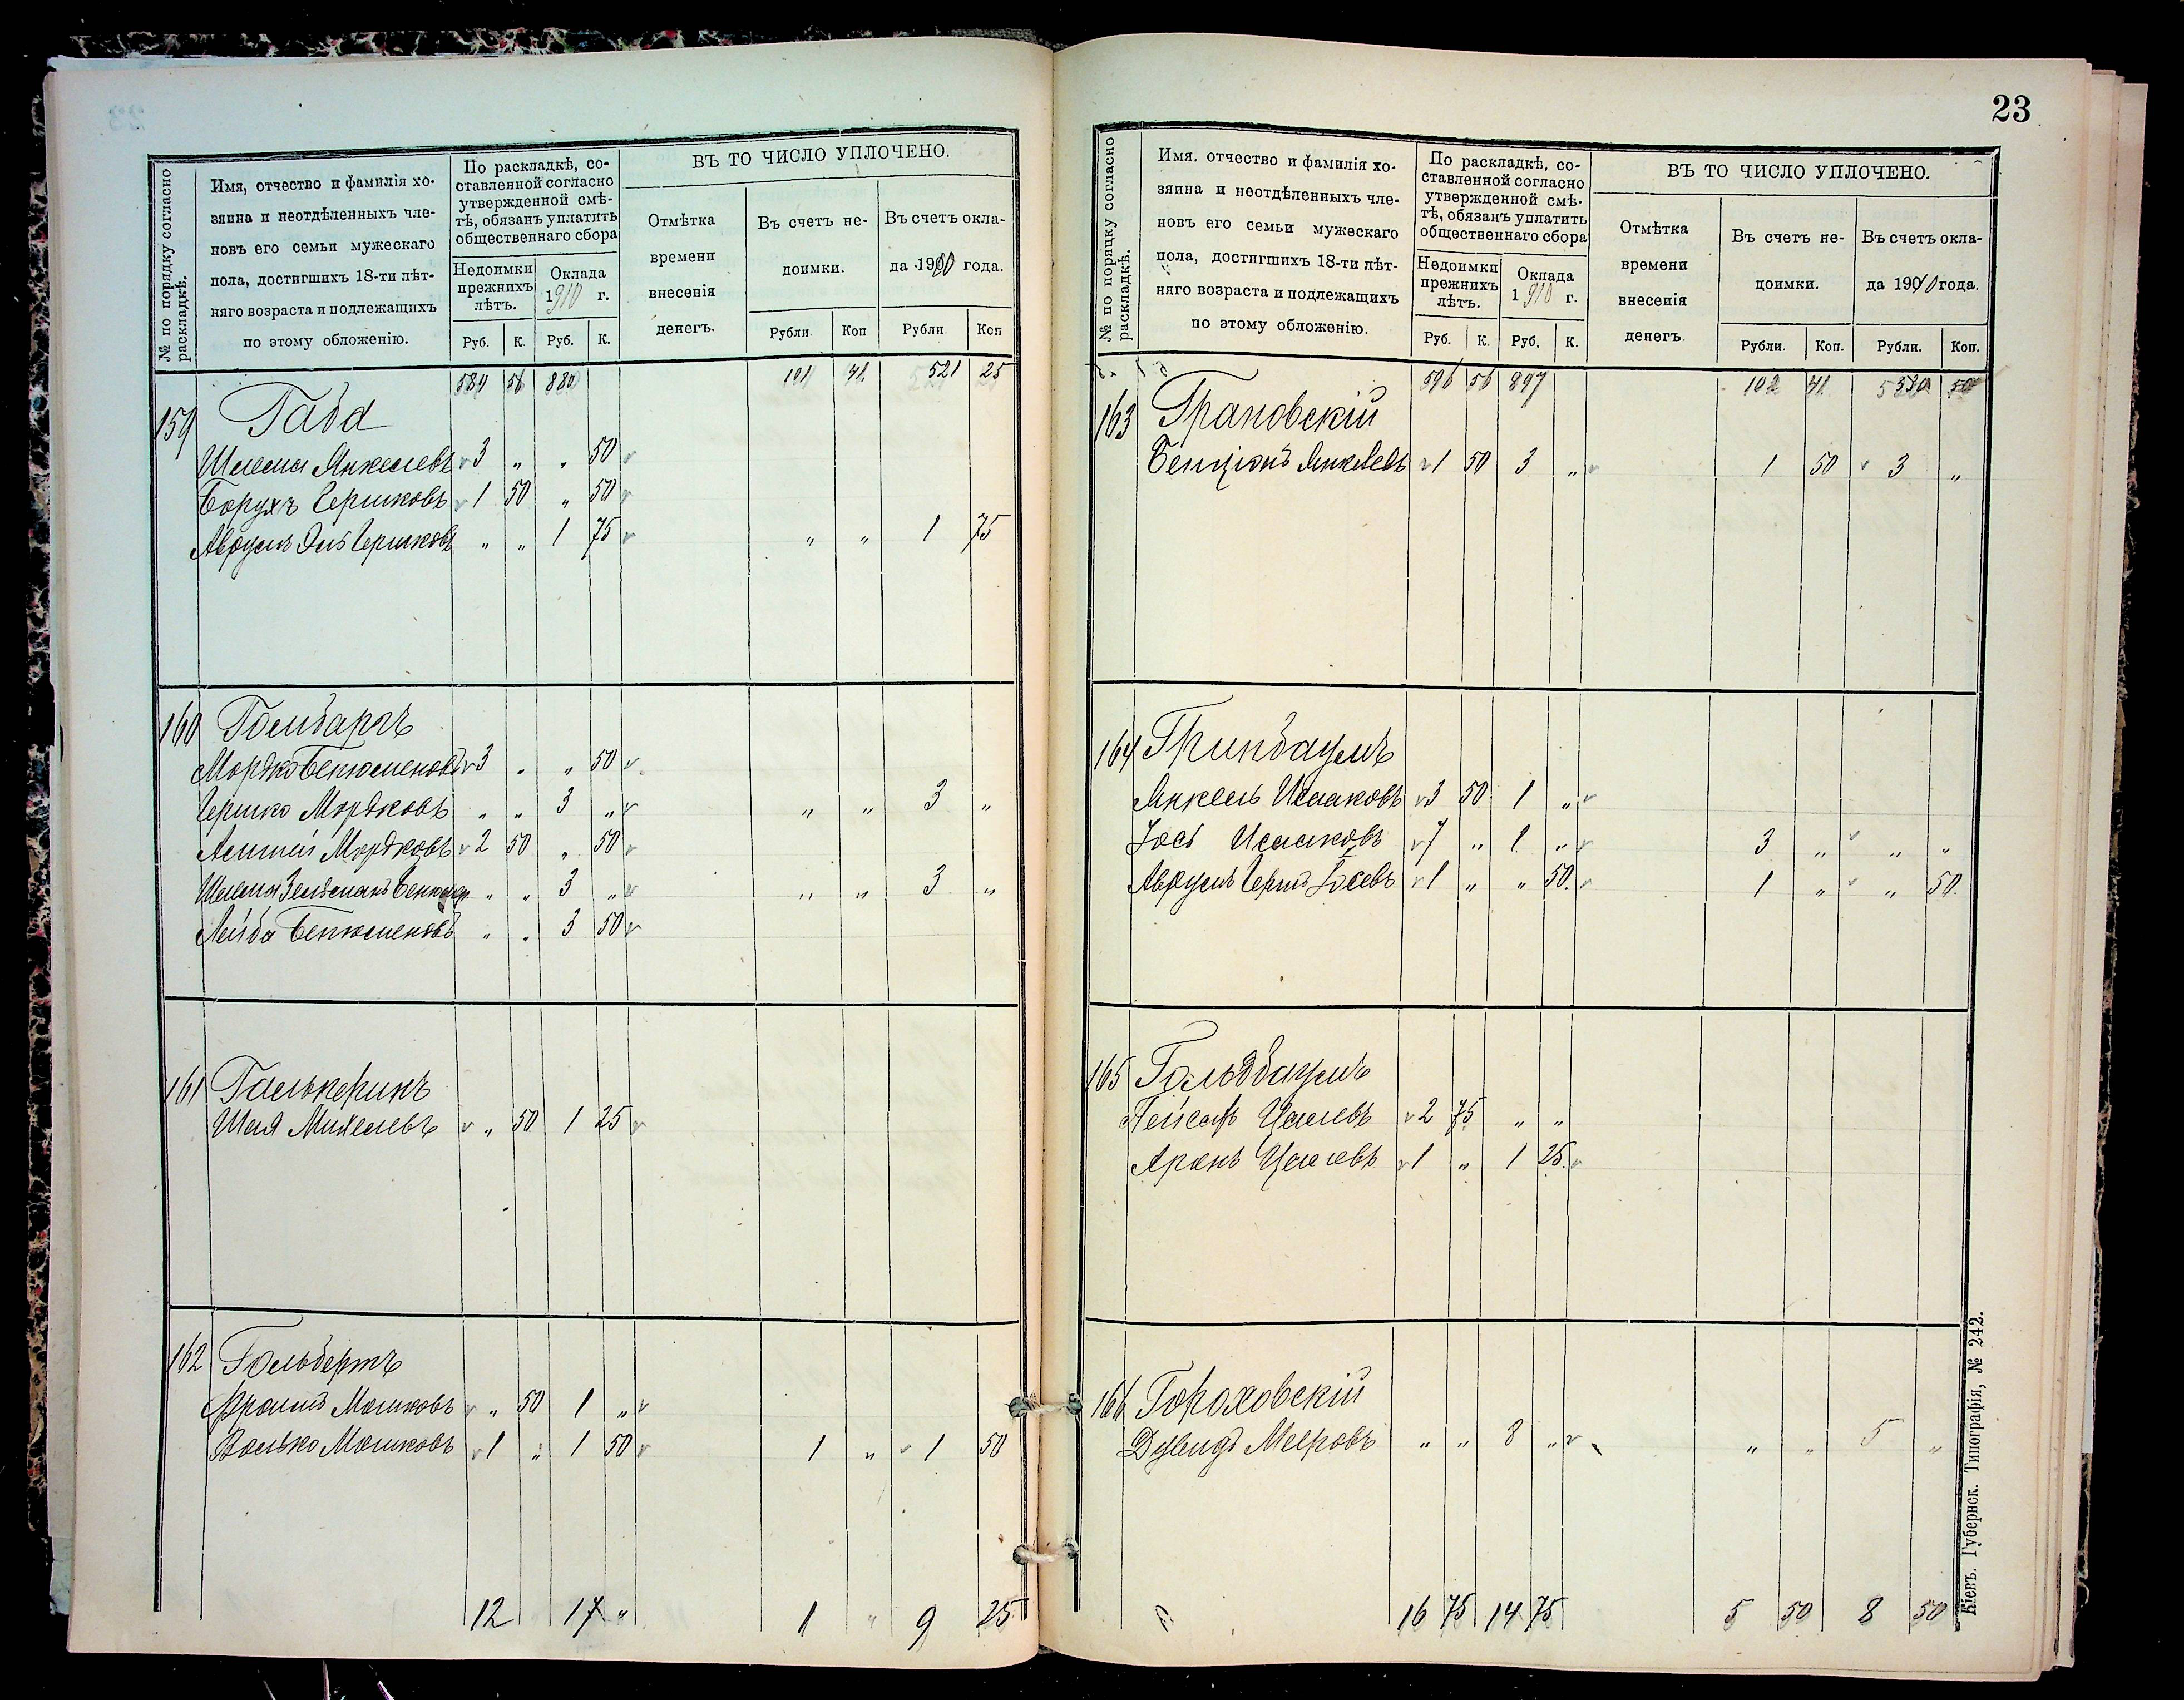 № по порядку согласно раскладкѣ.
Имя, отчество и фамилія хо-
зяина и неотдѣленныхъ чле-
новъ его семьи мужескаго
пола, достигшихъ 18-ти лѣт-
няго возраста и подлежащихъ
по этому обложенію.
По раскладкѣ, со-
ставленной согласно
утвержденной смѣ-
тѣ, обязанъ уплатить
общественнаго сбора
Недоимки
прежнихъ
лѣтъ.
Оклада
1910 г.
Руб. К. Руб. К.
ВЪ ТО ЧИСЛО УПЛОЧЕНО.
Отмѣтка
времени
внесенія
денегъ.
Въ счетъ не-
доимки.
Въ счетъ окла-
да 1910 года.
Рубли Коп Рубли Коп
584 56 880 101 41. 521 25
159 Габа
Шлема Янкелевъ 3 „ „ 50
Борухъ Гершковъ 1 50 „ 50
Аврумъ Эль Гершковъ „ „ 1 75 „ „ 1 75
160
Мордко Бенюменовъ 3 „ „ 50
Гершко Мордковъ „ „ 3 „ „ „ 3 „
Мордковъ 2 50 „ 50
Шлема Зельман „ „ 3 „ „ „ 3 „
Лейба Бенюменовъ „ „ 3 50
161 Галькеринъ
Шая Михелевъ „ 50 1 25
162 Гольбертъ
Фроимъ Мошковъ „ 50 1 „
Волько Мошковъ 1 „ 1 50 1 „ 1 50
12 17 „ 1 „ 9 25
23
№ по порядку согласно раскладкѣ.
Имя. отчество и фамилія хо-
зяина и неотдѣленныхъ чле-
новъ его семьи мужескаго
пола, достигшихъ 18-ти лѣт-
няго возраста и подлежащихъ
по этому обложенію.
По раскладкѣ, со-
ставленной согласно
утвержденной смѣ-
тѣ, обязанъ уплатить
общественнаго сбора
Недоимки
прежнихъ
лѣтъ.
Оклада
1910 г.
Руб. К. Руб. К.
ВЪ ТО ЧИСЛО УПЛОЧЕНО.
Отмѣтка
времени
внесенія
денегъ.
Въ счетъ не-
доимки.
Въ счетъ окла-
да 1910 года.
Рубли. Коп. Рубли. Коп.
596 56 897 102 41. 530 50
163 Грановскій
Бенціонъ Янкелевъ 1 50 3 „ 1 50 3 „
164 Гринбаумъ
Янкель Исааковъ 3 50 1 „
Іось Исааковъ 7 „ 1 „ 3 „ „ „
Аврумъ Гершъ Іосевъ 1 „ „ 50. 1 „ „ 50.
165 Гольдбаумъ
Пейсахъ 2 75 „ „
Аронъ 1 „ 1 25.
166 Гороховскій
Дувидъ Мееровъ „ „ 8 „ „ „ 5 „
16 75 14 75 5 50 8 50
Кіевъ. Губернск. Типографія, № 242.